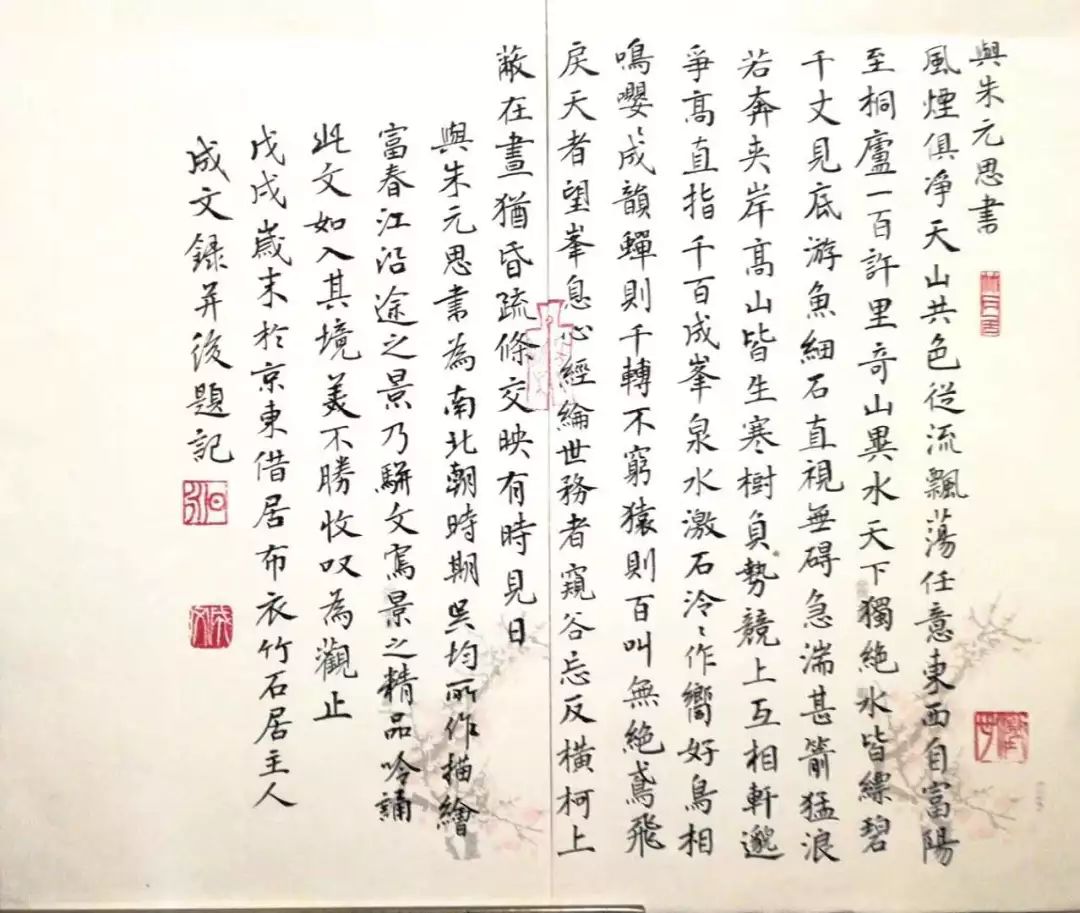 與朱元思書
竹石居
風煙俱净天山共色從流飄蕩任意東西自富陽
至桐廬一百許里奇山異水天下獨絶水皆縹碧
千丈見底游魚細石直視無碍急湍甚箭猛浪
若奔夹岸高山皆生寒樹負勢競上互相軒邈
爭高直指千百成峯泉水激石泠〻作嚮好鳥相
鳴嚶〻成韻蟬則千轉不窮猿則百叫無絶鳶飛
戾天者望峯息心經綸世務者窺谷忘反橫柯上
蔽在晝猶昏疏條交映有時見日
與朱元思書為南北朝時期吳均所作描繪
富春江沿途之景乃駢文寫景之精品吟誦
此文如入其境美不勝收叹為觀止
戊戌歲末於京東借居布衣竹石居主人
成文録并後題記
成文